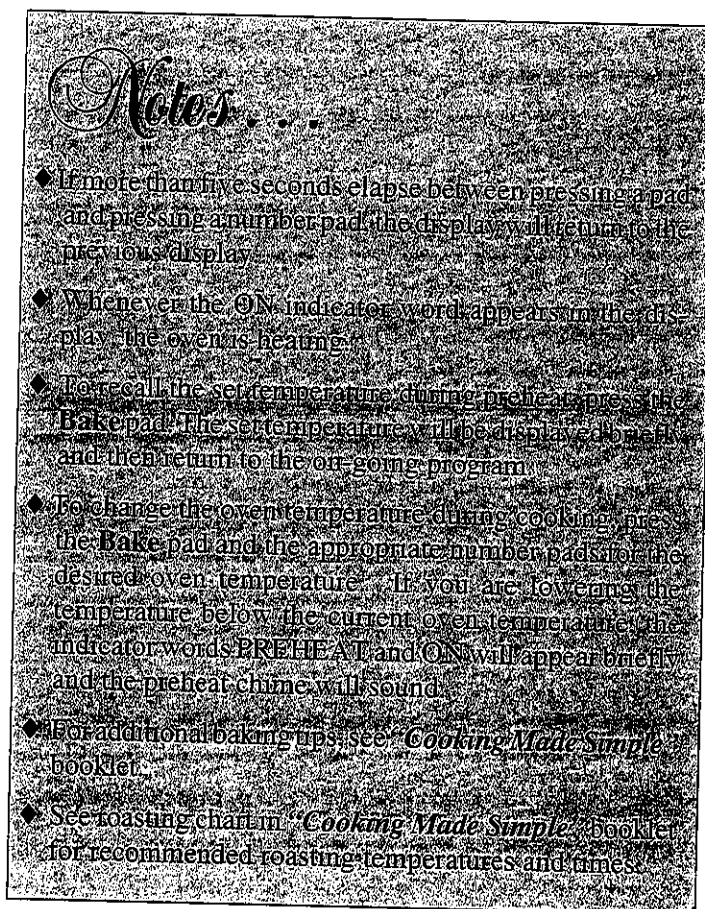 Notes...
◆ If more than five seconds elapse between pressing a pad
and pressing a number pad, the display will return to the
previous display.
◆ Whenever the ON indicator word appears in the dis-
play, the oven is heating.
◆ To recall the set temperature during preheat, press the
Bake pad. The set temperature will be displayed briefly
and then return to the on-going program.
◆ To change the oven temperature during cooking, press
the Bake pad and the appropriate number pads for the
desired oven temperature. If you are lowering the
temperature below the current oven temperature, the
indicator words PREHEAT and ON will appear briefly
and the preheat chime will sound.
◆ For additional baking tips, see "Cooking Made Simple"
booklet.
◆ See roasting chart in "Cooking Made Simple" booklet
for recommended roasting temperatures and times.